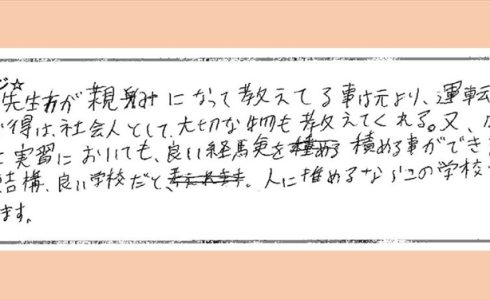 ジ☆
先生方が親身になって教えてる事は元より、運転
得は、社会人として、大切な物も教えてくれる。又、
実習においても、良い経験を積める事ができ
結構、良い学校だと、人に推めるならこの学校
ます。